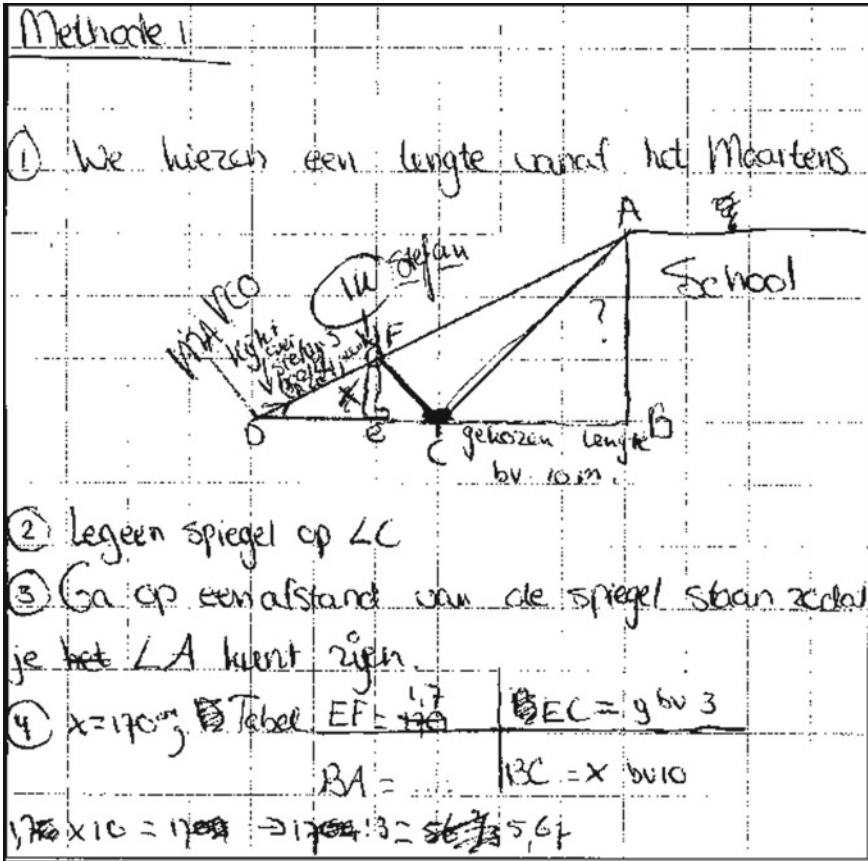 Methode 1
① We kiezen een lengte vanaf het Maartens
A
Stefan
School
F
?
x
D
E
C
B
gekozen lengte
bv 10 m.
② Leg een spiegel op ∠C
③ Ga op een afstand van de spiegel staan zodat
je het ∠A kunt zijen.
④ x=170 cm Tabel EF = 1,7 EC = y bv 3
BA = .... BC = x bv 10
x 10 = :3 = 5,67